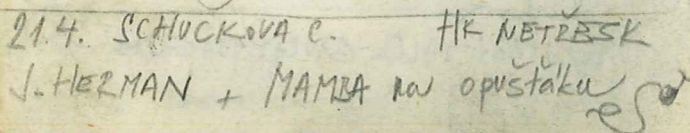 21.4. SCHUCKOVA C. HK NETŘESK
J. HERMAN + MAMBA na opušťáku